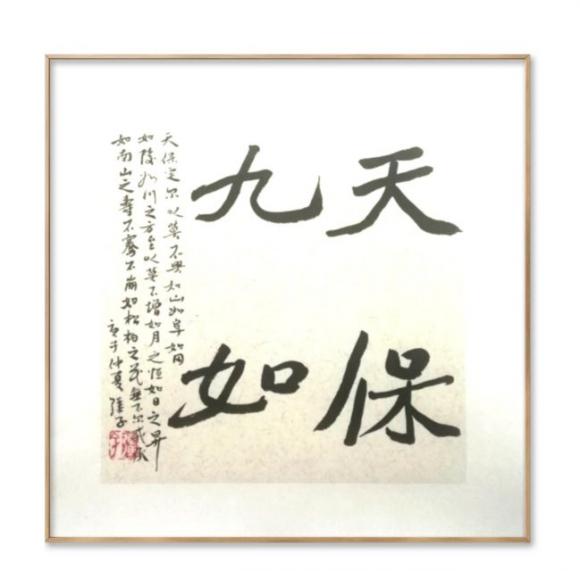 天保
九如
天保定尔以莫不興如山如阜如岡
如陵如川之方至以莫不增如月之恒如日之昇
如南山之壽不騫不崩如松柏之茂無不尔或承
庚子仲夏